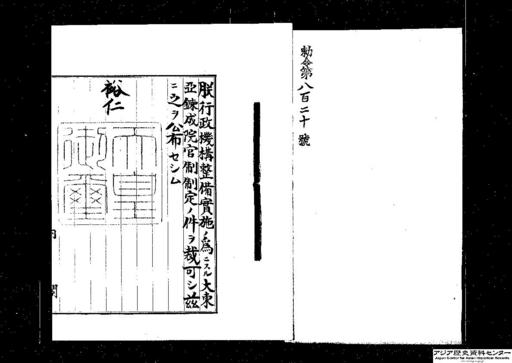 勅令第八百二十號
朕行政機構整備實施ノ爲ニスル大東
亞錬成院官制制定ノ件ヲ裁可シ茲
ニ之ヲ公布セシム
裕仁
天皇
御璽
内閣
アジア歴史資料センター
Japan Center for Asian Historical Records